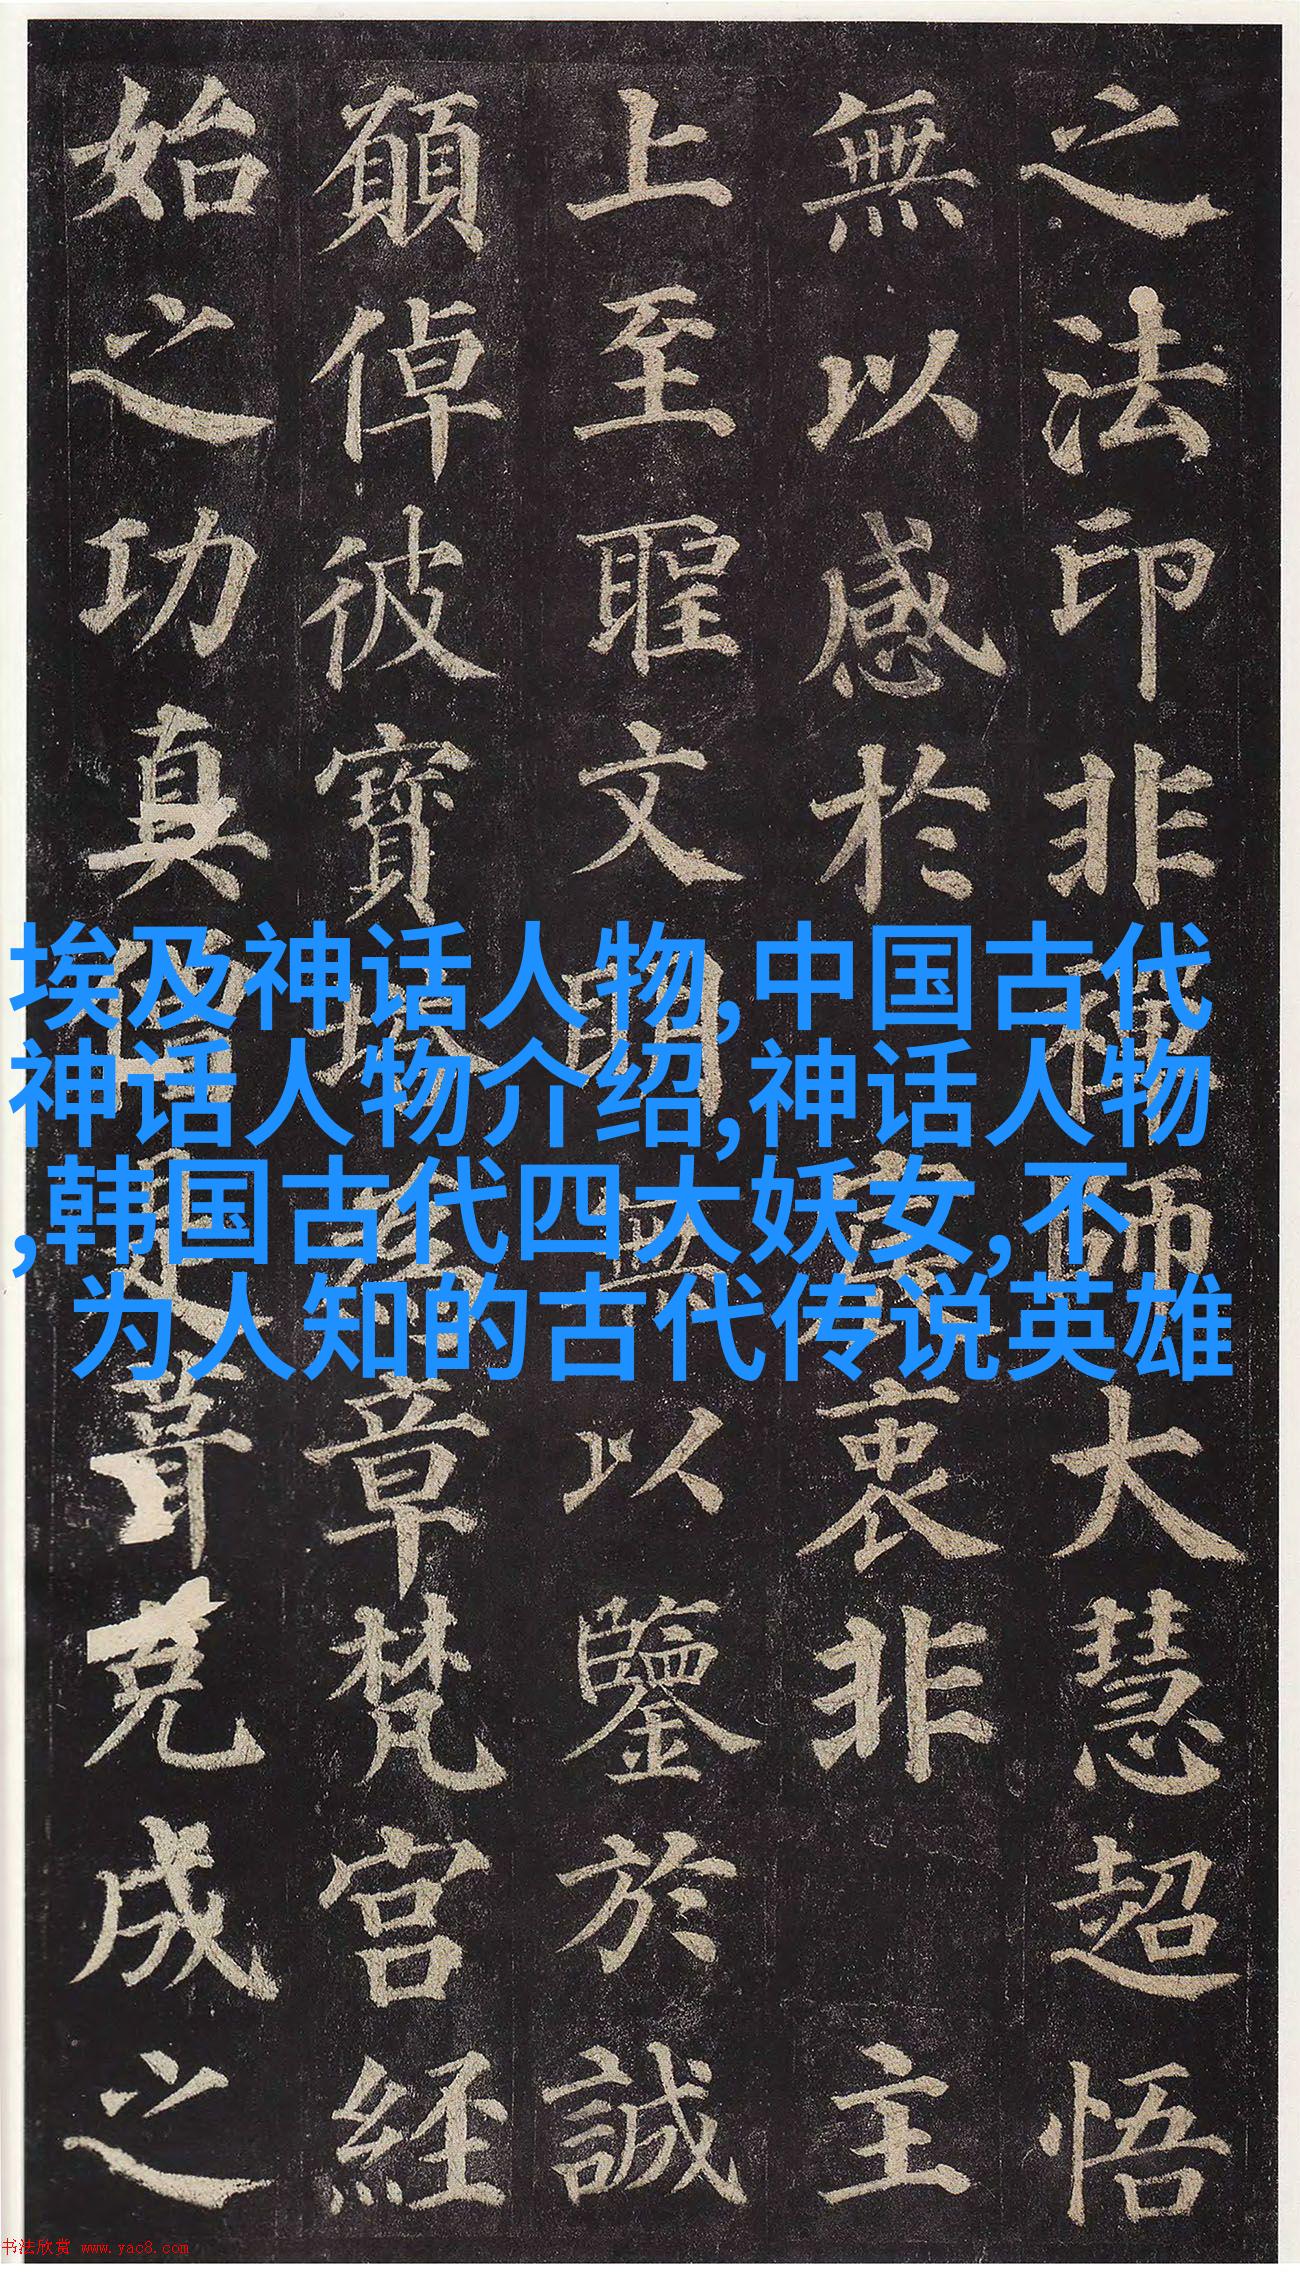 之法印非禪師大慧超悟
無以感於宸衷非主
上至聖文明無以鑒於誠
願倬彼寶塔為章梵宮經
始之功真僧是葺克成之
埃及神话人物,中国古代
神话人物介绍,神话人物
,韩国古代四大妖女,不
为人知的古代传说英雄
书法欣赏 www.yac8.com